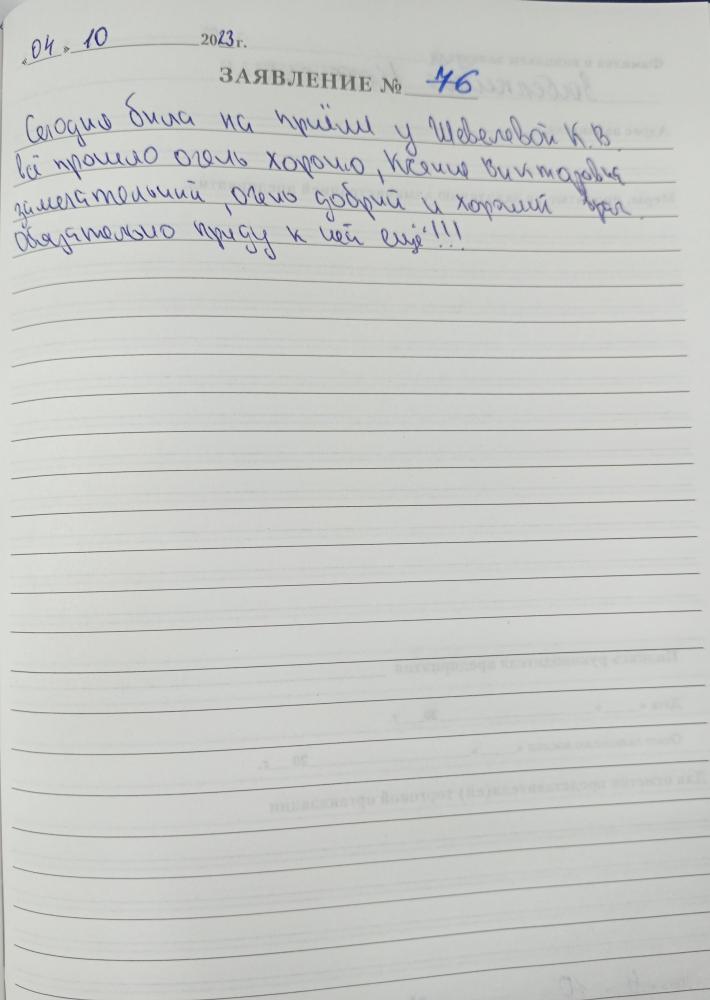 «04» 10 2023г.
ЗАЯВЛЕНИЕ № 76
Сегодня била на приёме у Шевелевой К.В.
всё прошло очень хорошо, Ксения Викторовна
замечательний, очень добрий и хороший врач.
Обязательно приду к ней ещё!!!